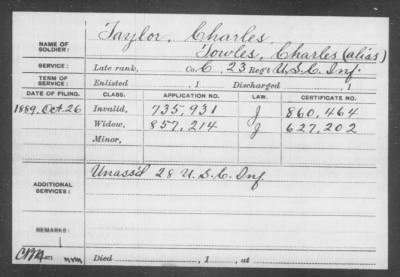 Taylor, Charles
NAME OF SOLDIER: Towles, Charles (alias)
SERVICE: Late rank, Co. C, 23 Reg't U.S.C. Inf.
TERM OF SERVICE: Enlisted , 1 Discharged , 1
DATE OF FILING. CLASS. APPLICATION NO. LAW. CERTIFICATE NO.
1889, Oct. 26 Invalid, 735,931 J 860,464
Widow, 857,214 J 627,202
Minor,
ADDITIONAL SERVICES: Unass'd 28 U.S.C. Inf
REMARKS:
Died , 1 , at